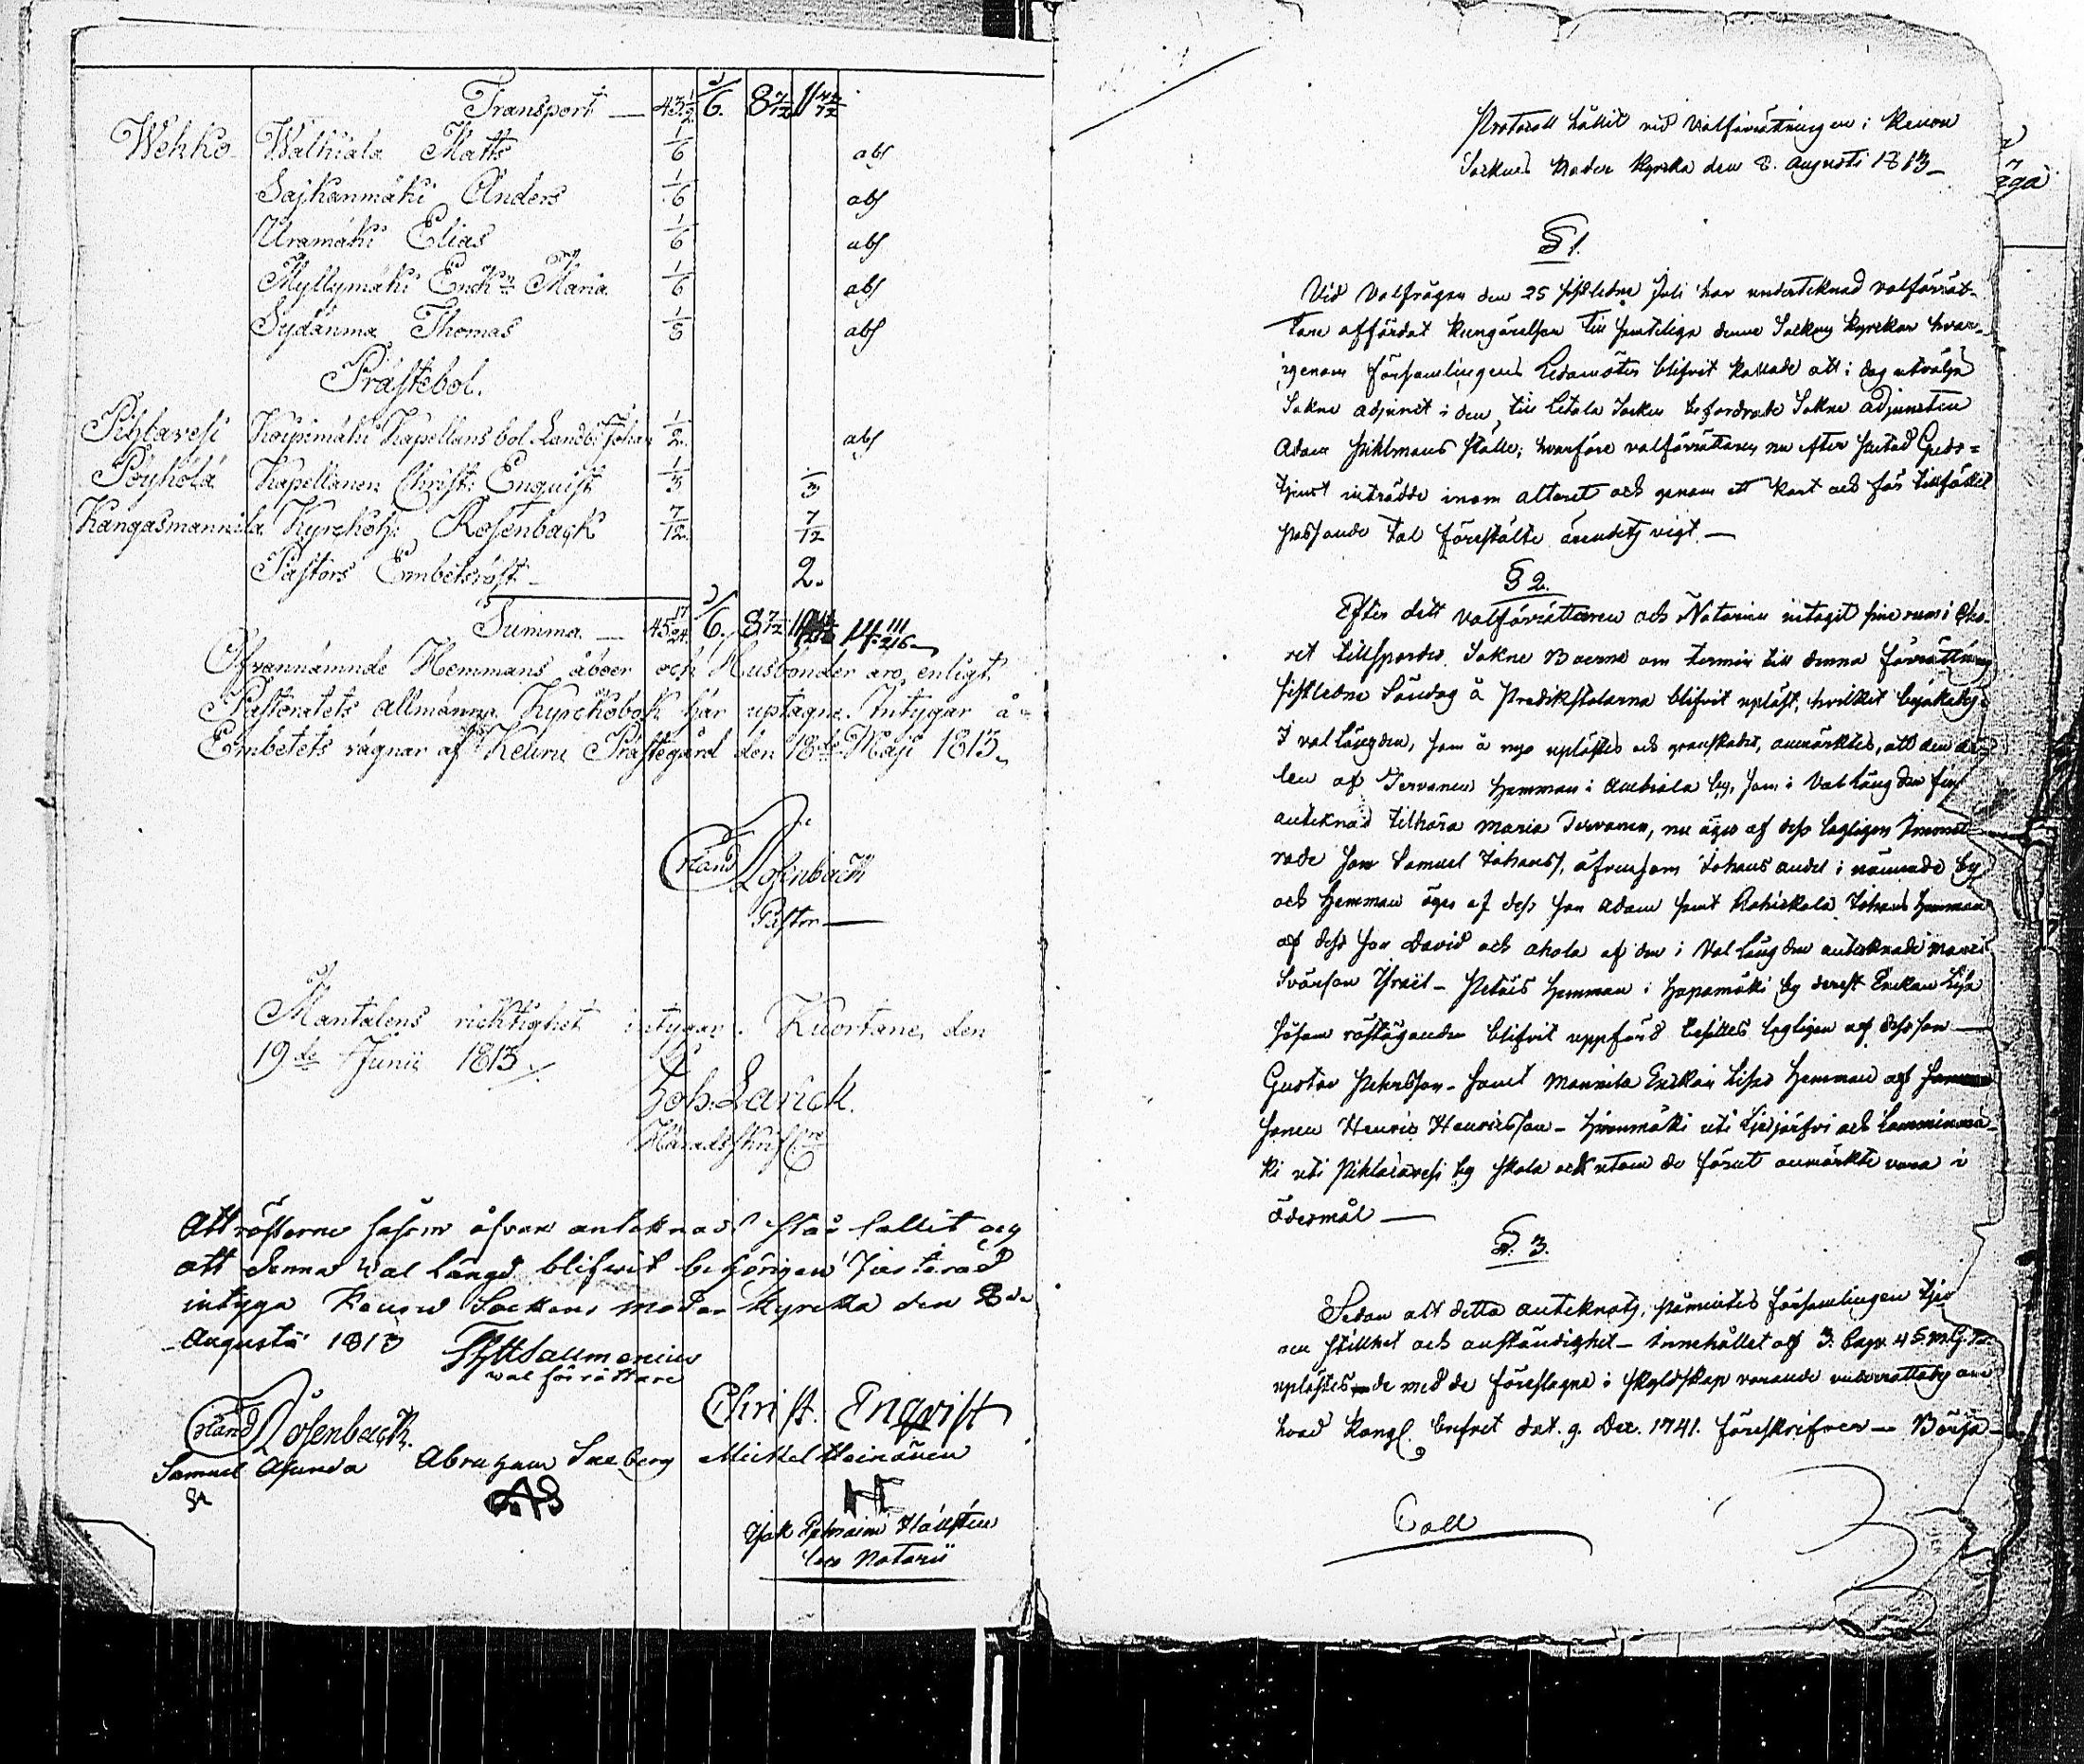 Transport — 43 1/2 6. 8 7/12 11
Wehko Walkiala Matts 1/6 abs
Sajkanmäki Anders 1/6 abs
Uramäki Elias 1/6 abs
Myllymäki Enck. Maria 1/6 abs
Sydänma Thomas 1/3 abs
Prästebol.
Pihlavesi Koipimäki Kapellans bol Landb. Johan 1/2 abs
Pöyhölä Kapellanen Christ. Enquist 1/3 1/3
Kangasmannila Kyrckoh: Rosenback 7/12 7/12
Pastors Embetsröst — 2.
Summa — 45 17/24 6. 8 7/12 14 111/216
Ofvannämnde Hemmans åboer och Husbönder äro, enligt
Pastoratets allmänna Kyrckobok här uptagne. Intygar å
Embetets vägnar af Keuru Prästegård den 18de Maji 1813.
Erland Rosenback
Pastor —
Mantalens ricktighet intygar. Kuortane, den
19de Junii 1813 ./.
Joh. Larick.
Häradsskrifv.
Att rösterne såsom ofvan antecknad står fallit och
att denna val längd blifwit behörigen Justerad
intyga Keuru Sockens moder Kyrcka den 8de
Augusti 1813
Salmenius
valförrättare
Erland Rosenback. Christ. Enqvist
Samuel Asunda Abraham Seeberg Mickel Heinonen
SA AS H
Isak Ephraim Hällsten
loco Notarii
Protocoll hållit vid Valförrättningen i Keuru
Sockens Moder Kyrka den 8. Augusti 1813 —
§ 1.
Vid Valfrågan den 25 sistledne Juli har undertecknad valförrät-
tare affärdat kungörelser till samteliga denne Sockens Kyrckor hvar-
igenom församlingens Ledamöter blifvit kallade att i dag utvälja
Sokne adjunct i den, till Letala Socken befordrade Sokne Adjuncten
Adam Pihlmans ställe; hvarföre valförrättaren nu efter slutad Guds-
tjenst inträdde inom altaret och genom ett kort och för tillfället
passande tal förestälte ärendets vigt. —
§ 2.
Efter dett Valförrättaren och Notarien intagit sine rum i Cho-
ret tillspordes Sokne Boerne om termin till denna förrättning
sistledne Söndag å Predikstolarna blifvit upläst, hvilket bejakades.
I vallängden, som å nyo uplästes och granskades, anmärktes, att den de-
len af Tervanen Hemman i by, som i Vallängden
antecknad tilhöra Maria Tervanen, nu äges af dess lagligen
rade son Samuel Johanss, äfvensom Johans andel i nämnde by
och Hemman äges af dess son Adam samt Johans Hemman
af dess son David och Ahola af den i Vallängden antecknade
Svärson Israël — Petäis Hemman i Hapamäki by derest Enckan Lisa
såsom röstägande blifvit uppförd besittes lagligen af dess son —
Gustav Petersson — samt Mannila Enckan Lisas Hemman af
sonen Henric Henricsson — Hirvimäki uti Liesjärfvi och Lamminmä-
ki uti Pihlajavesi by skola och utom de förut anmärkte vara i
ödesmål —
§. 3.
Sedan alt detta anteknats, påmintes församlingen
om stillhet och anständighet — innehållet af 3. Cap.
uplästes de med de föreslagne i skyldskap varande underrättades om
hvad Kongl. brefvet dat. 9. Dec. 1741. föreskrifver — Började
Coll